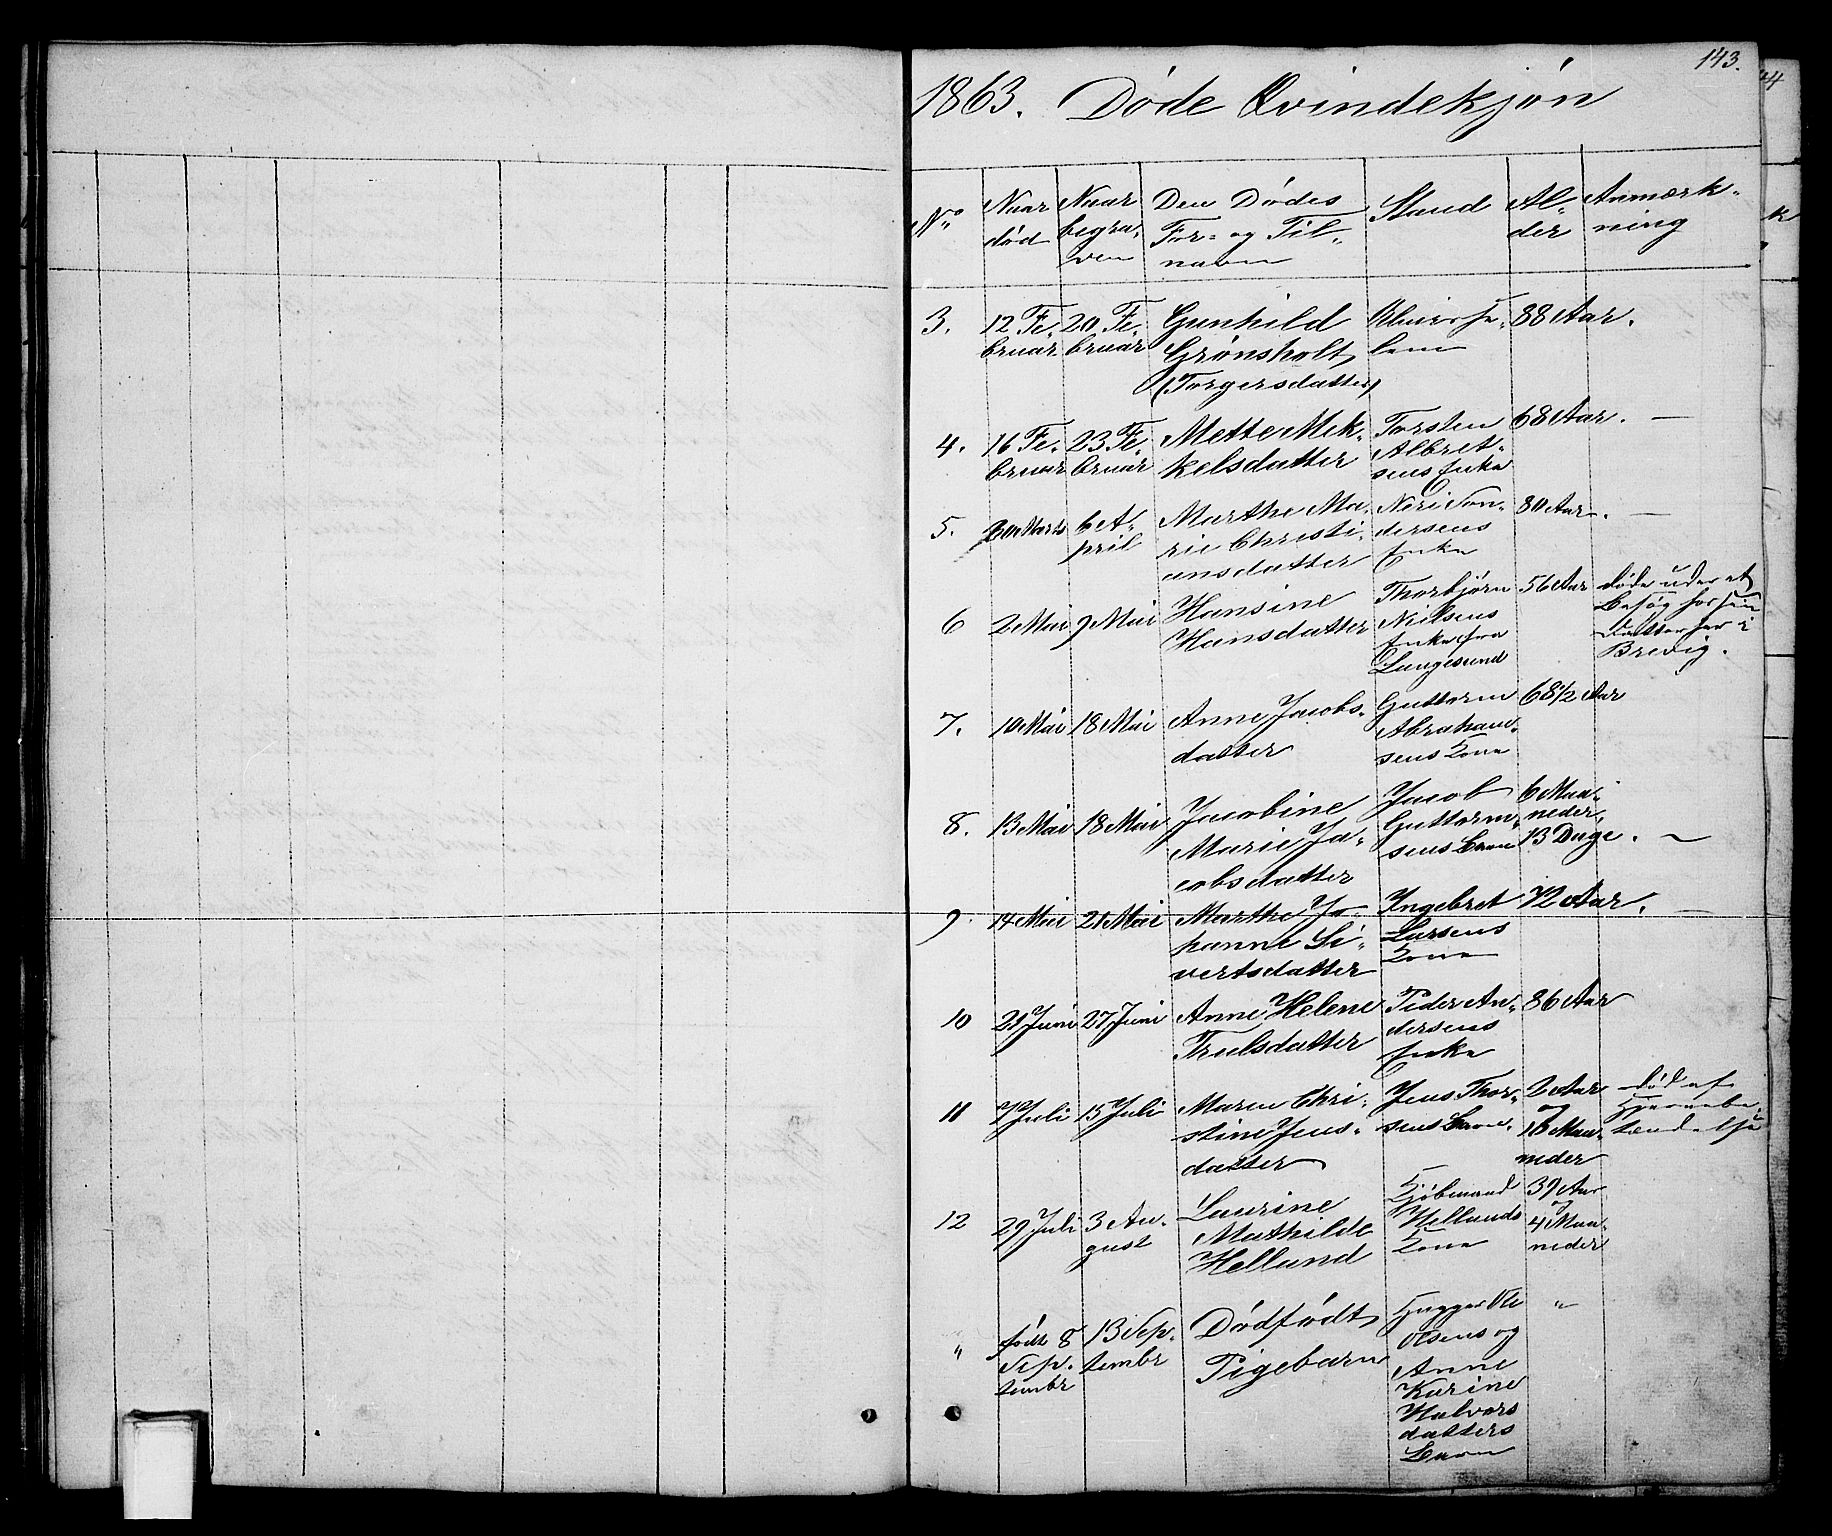 143.
1863. Døde Qvindekjøn
No
Naar død
Naar begraven
Den Dødes For- og Tilnavn
Stand
Alder
Anmærkning
3. 12 Februar 20 Februar Gunhild Grønsholt (Torgersdatter) 88 Aar.
4. 16 Februar 23 Februar Mette Mekkelsdatter Torsten Albretsens Enke 68 Aar. —
5. Marts 6 April Marthe Marie Christiansdatter Enke 80 Aar. —
6 2 Mai 9 Mai Hansine Hansdatter Thorbjørn Nielsens Enke fra Langesund 56 Aar døde under et Besøg hos sin Datter her i Brevig.
7. 10 Mai 18 Mai Anne Jacobsdatter Guttorm Abrahamsens Kone 68 1/2 Aar
8. 13 Mai 18 Mai Jacobine Marie Jacobsdatter Jacob Guttormsens Barn 6 Maaneder, 13 Dage. —
9. 14 Mai 21 Mai Marthe Johanne Sivertsdatter Ingebret Larsens Kone 72 Aar. —
10 21 Juni 27 Juni Anne Helene Trulsdatter Peder Andersens Enke 86 Aar
11 7 Juli 15 Juli Maren Christine Jensdatter Jens Thorsens Barn. 2 Aar Maaneder død af
12 29 Juli 3 August Laurine Mathilde Helland Kjøbmand Hellands Kone 39 Aar 4 Maaneder
" født 8 Septembr 13 Septembr Dødfødt Pigebarn Ole Olsens og Anne Karine Halvorsdatters Barn "